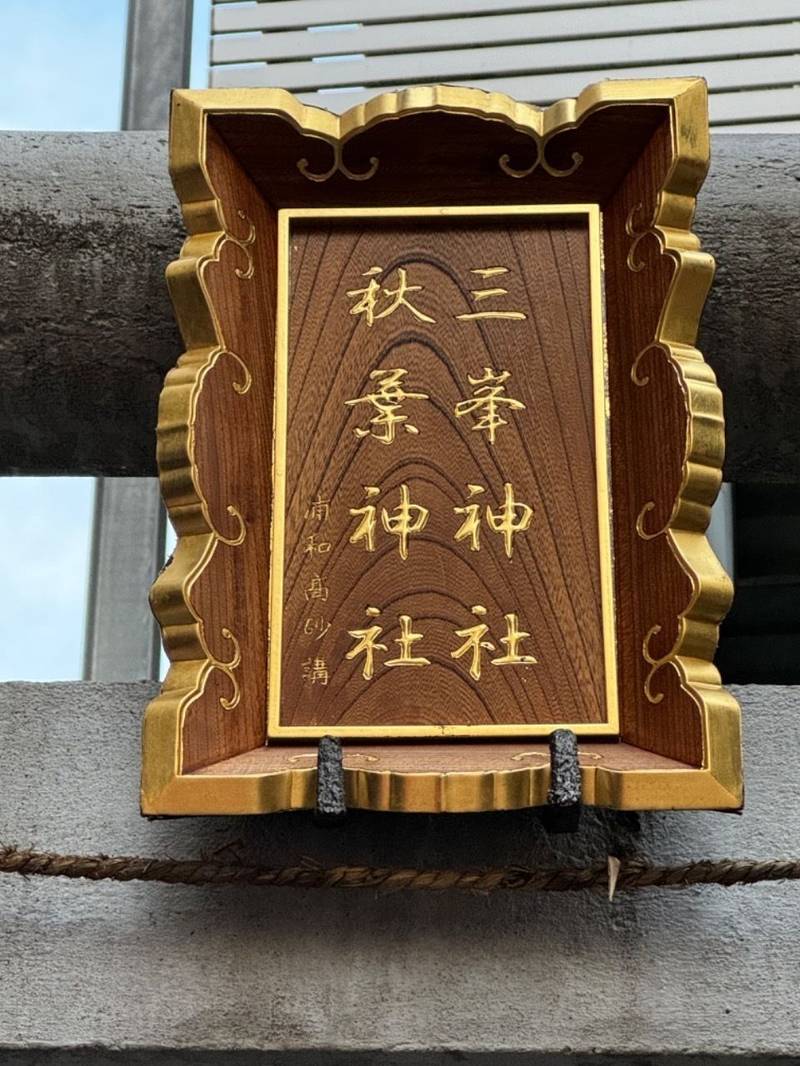 三峯神社
秋葉神社
南和高砂講